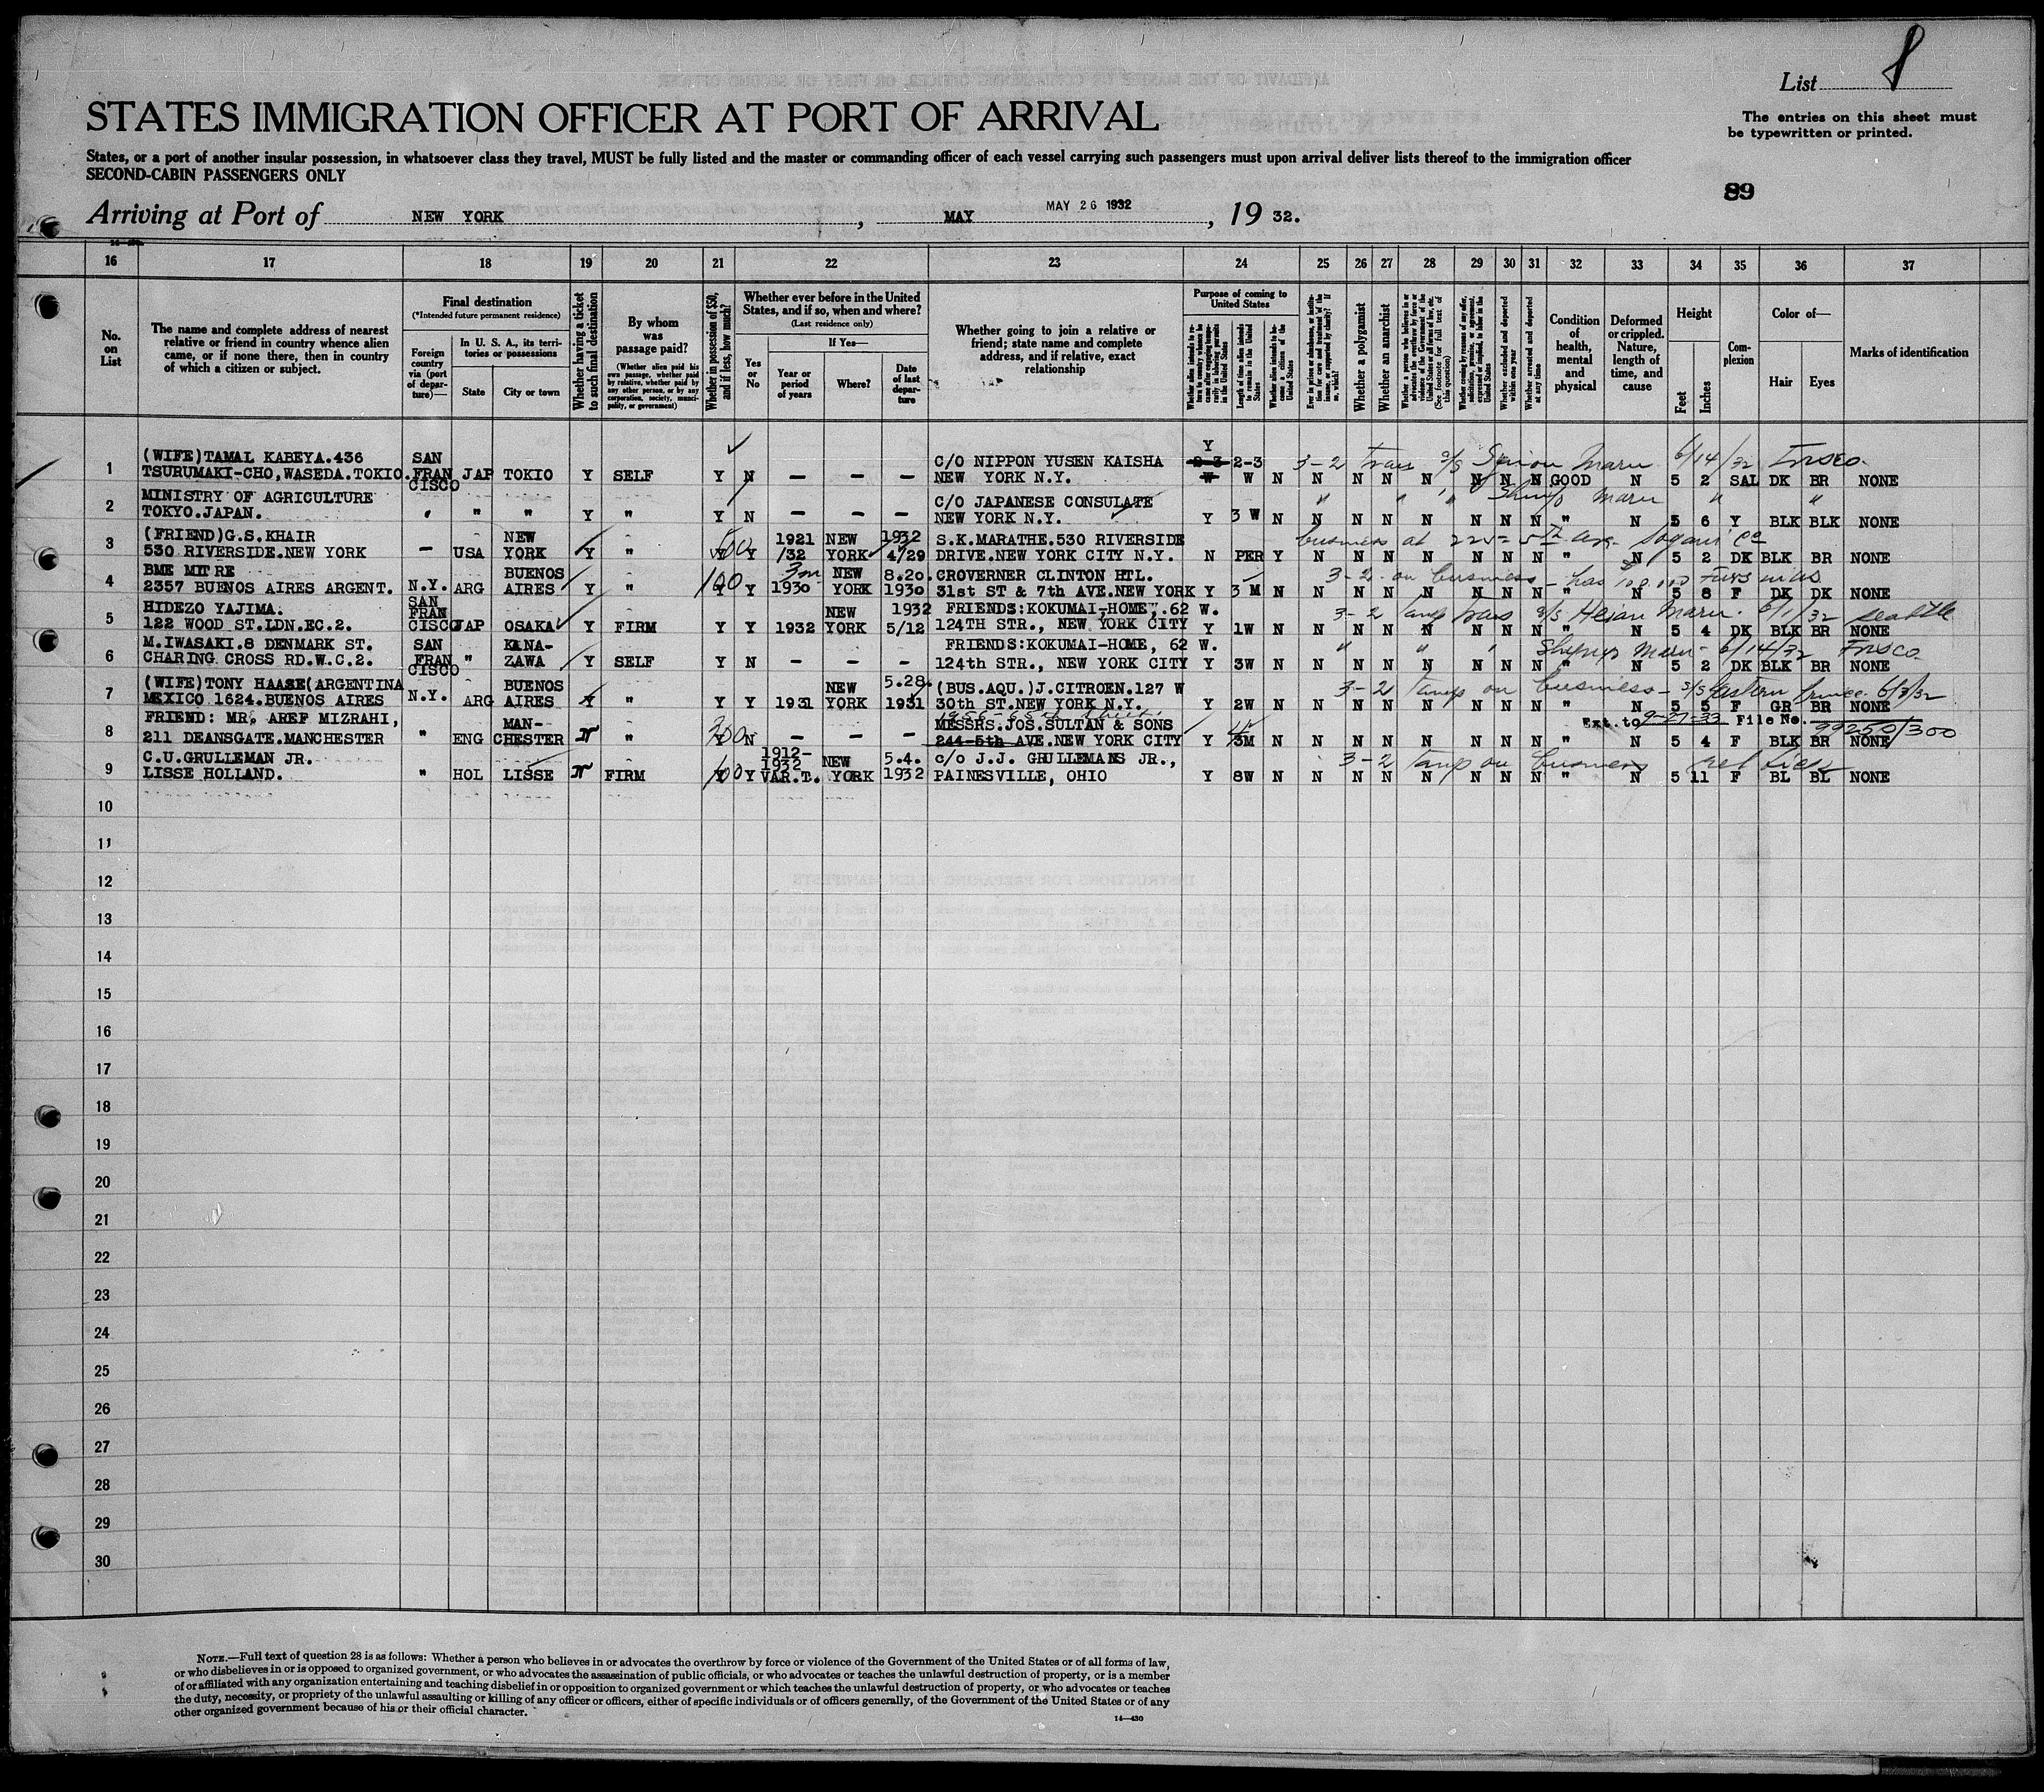 List 8
STATES IMMIGRATION OFFICER AT PORT OF ARRIVAL
The entries on this sheet must
be typewritten or printed.
States, or a port of another insular possession, in whatsoever class they travel, MUST be fully listed and the master or commanding officer of each vessel carrying such passengers must upon arrival deliver lists thereof to the immigration officer
SECOND-CABIN PASSENGERS ONLY
89
Arriving at Port of NEW YORK, MAY MAY 26 1932, 19 32.
16 17 18 19 20 21 22 23 24 25 26 27 28 29 30 31 32 33 34 35 36 37
No. on List
The name and complete address of nearest relative or friend in country whence alien came, or if none there, then in country of which a citizen or subject.
Final destination
(*Intended future permanent residence)
Foreign country via (port of departure)—
In U. S. A., its territories or possessions
State
City or town
Whether having a ticket to such final destination
By whom was passage paid?
(Whether alien paid his own passage, whether paid by relative, whether paid by any other person, or by any corporation, society, municipality, or government)
Whether in possession of $50, and if less, how much?
Whether ever before in the United States, and if so, when and where?
(Last residence only)
Yes or No
If Yes—
Year or period of years
Where?
Date of last departure
Whether going to join a relative or friend; state name and complete address, and if relative, exact relationship
Purpose of coming to United States
Length of time alien intends to remain in the United States
Whether alien intends to become a citizen of the United States
Whether a polygamist
Whether an anarchist
Whether excluded and deported within one year
Whether arrested and deported at any time
Condition of health, mental and physical
Deformed or crippled. Nature, length of time, and cause
Height
Feet
Inches
Complexion
Color of—
Hair
Eyes
Marks of identification
1 (WIFE) TAMAL KABEYA.436 SAN C/O NIPPON YUSEN KAISHA Y 3-2 Trans 6/14/32 Frisco
TSURUMAKI-CHO, WASEDA.TOKIO. FRAN CISCO JAP TOKIO Y SELF Y N — — — NEW YORK N.Y. 2-3 W N N N N N N N N GOOD N 5 2 SAL DK BR NONE
2 MINISTRY OF AGRICULTURE C/O JAPANESE CONSULATE " " " Maru " "
TOKYO.JAPAN. " " " Y " Y N — — — NEW YORK N.Y. Y 3 W N N N N N N N N " N 5 6 Y BLK BLK NONE
3 (FRIEND)G.S.KHAIR NEW 1921 NEW 1932 S.K.MARATHE.530 RIVERSIDE business at 225 - 5th ave.
530 RIVERSIDE.NEW YORK — USA YORK Y " Y Y /32 YORK 4/29 DRIVE.NEW YORK CITY N.Y. N PER Y N N N N N N N " N 5 2 DK BLK BR NONE
4 BME MITRE BUENOS 100 3m NEW 8.20. GROVERNER CLINTON HTL. 3-2 on business - has
2357 BUENOS AIRES ARGENT. N.Y. ARG AIRES Y " Y Y 1930 YORK 1930 31st ST & 7th AVE.NEW YORK Y 3 M N N N N N N N N " N 5 8 F DK DK NONE
5 HIDEZO YAJIMA. SAN FRAN NEW 1932 FRIENDS:KOKUMAI-HOME, 62 W. 3-2 Temp trans S/S Heian Maru. 6/1/32 Seattle
122 WOOD ST.LDN.EC.2. CISCO JAP OSAKA Y FIRM Y Y 1932 YORK 5/12 124TH STR., NEW YORK CITY Y 1W N N N N N N N N " N 5 4 DK BLK BR NONE
6 M.IWASAKI.8 DENMARK ST. SAN KANA- FRIENDS:KOKUMAI-HOME, 62 W. " " " Maru - 6/14/32 Frisco
CHARING CROSS RD.W.C.2. FRAN CISCO " ZAWA Y SELF Y N — — — 124th STR., NEW YORK CITY Y 3W N N N N N N N N " N 5 2 DK BLK BR NONE
7 (WIFE) TONY HAASE(ARGENTINA BUENOS NEW 5.28. (BUS.AQU.)J.CITROEN.127 W 3-2 Temp on business - S/S Eastern Prince 6/3/32
MEXICO 1624.BUENOS AIRES N.Y. ARG AIRES Y " Y Y 1931 YORK 1931 30th ST.NEW YORK N.Y. Y 2W N N N N N N N N " N 5 5 F GR BR NONE
8 FRIEND: MR. AREF MIZRAHI, MAN- 200 MESSRS.JOS.SULTAN & SONS Ext. to 9-27-33 File No. 99250/300
211 DEANSGATE.MANCHESTER " ENG CHESTER " Y N — — — 244-5th AVE.NEW YORK CITY Y 3M N N N N N N N N " N 5 4 F BLK BR NONE
9 C.U.GRULLEMAN JR. 1912- 1932 NEW 5.4. c/o J.J. GRULLEMANS JR., 3-2 Temp on business
LISSE HOLLAND. " HOL LISSE FIRM 100 Y Y VAR.T. YORK 1932 PAINESVILLE, OHIO Y 8W N N N N N N N N " N 5 11 F BL BL NONE
10
11
12
13
14
15
16
17
18
19
20
21
22
23
24
25
26
27
28
29
30
NOTE.—Full text of question 28 is as follows: Whether a person who believes in or advocates the overthrow by force or violence of the Government of the United States or of all forms of law,
or who disbelieves in or is opposed to organized government, or who advocates the assassination of public officials, or who advocates or teaches the unlawful destruction of property, or is a member
of or affiliated with any organization entertaining and teaching disbelief in or opposition to organized government or which teaches the unlawful destruction of property, or who advocates or teaches
the duty, necessity, or propriety of the unlawful assaulting or killing of any officer or officers, either of specific individuals or of officers generally, of the Government of the United States or of any
other organized government because of his or their official character.
14—430